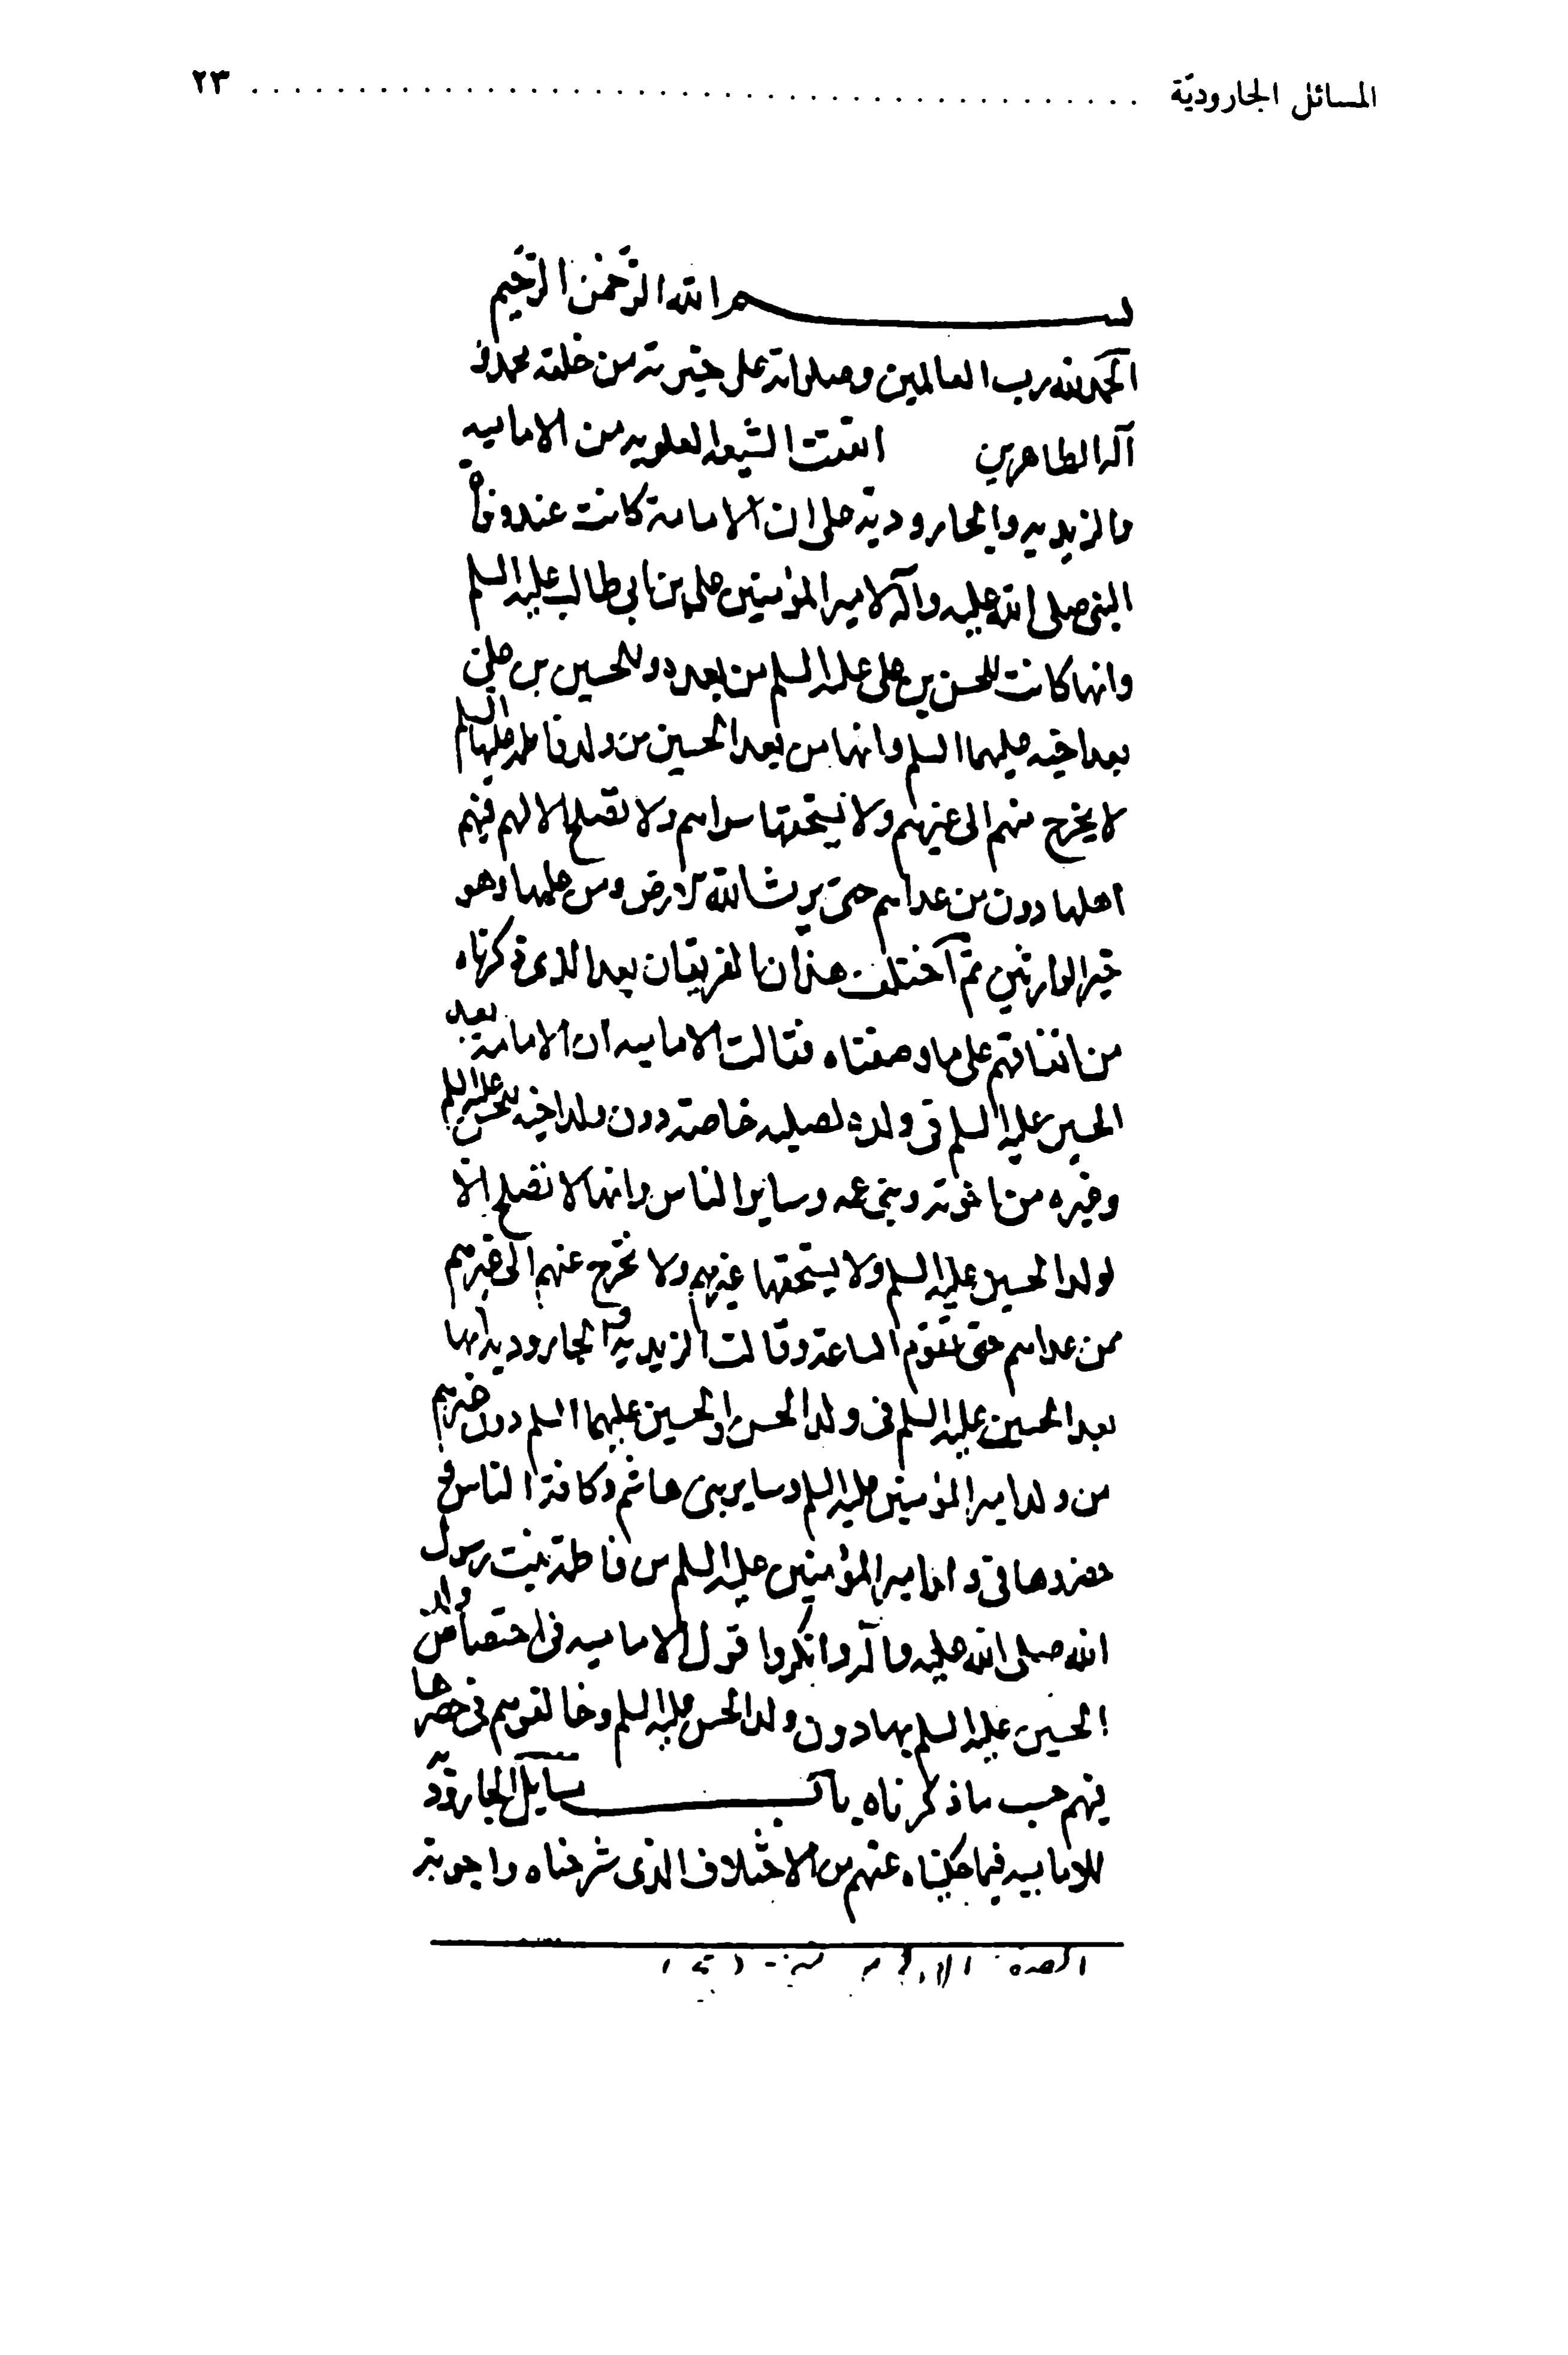 المسائل الجاروديّة ........................................ ٢٣
بسم الله الرّحمن الرّحيم
الحمد لله رب العالمين وصلواته على خيرته من خلقه محمد و
آله الطاهرين اتفقت الشيعه العلويه من الاماميه
والزيديه والجاروديّة على ان الامامة كانت عند وفاة
النبي صلى الله عليه وآله لامير المؤمنين على بن ابي طالب عليه السلم
وانها كانت للحسن بن على عليه السلم من بعده وللحسين بن على
بعد اخيه عليهما السلم وانها من بعد الحسين من ولد فاطمه عليها السلم
لا يخرج منهم الى غيرهم ولا يستحقها سواهم ولا تصلح الا لهم فهم
اهلها دون من عداهم حتى يرث الله الارض ومن عليها وهو
خير الوارثين ثم اختلف هذان الفريقان بعد الذي ذكرناه
من اتفاقهم على ما وصفناه فقالت الاماميه ان الامامة بعد
الحسين عليه السلم في ولده لصلبه خاصة دون ولد اخيه الحسن عليه السلم
وغيره من اخوته وبني عمه وساير الناس وانها لا تصلح الا
لولد الحسين عليه السلم ولا يستحقها غيرهم ولا تخرج عنهم الى غيرهم
ممن عداهم حتى تقوم الساعة وقالت الزيدية الجاروديه انها
بعد الحسين عليه السلم في ولد الحسن والحسين عليهما السلم دون غيرهم
من ولد امير المؤمنين عليه السلم وساير بنى هاشم وكافة الناس
حصروها في ولد امير المؤمنين عليه السلم من فاطمة بنت رسول
الله صلى الله عليه وآله وانكروا قول الاماميه في اختصاص ولد
الحسين عليه السلم بها دون ولد الحسن عليه السلم وخالفوهم في حصرها
فيهم حسب ما ذكرناه باب مسايل الجارودية
للاماميه فيما حكيناه عنهم من الاختلاف الذى شرحناه واجوبته